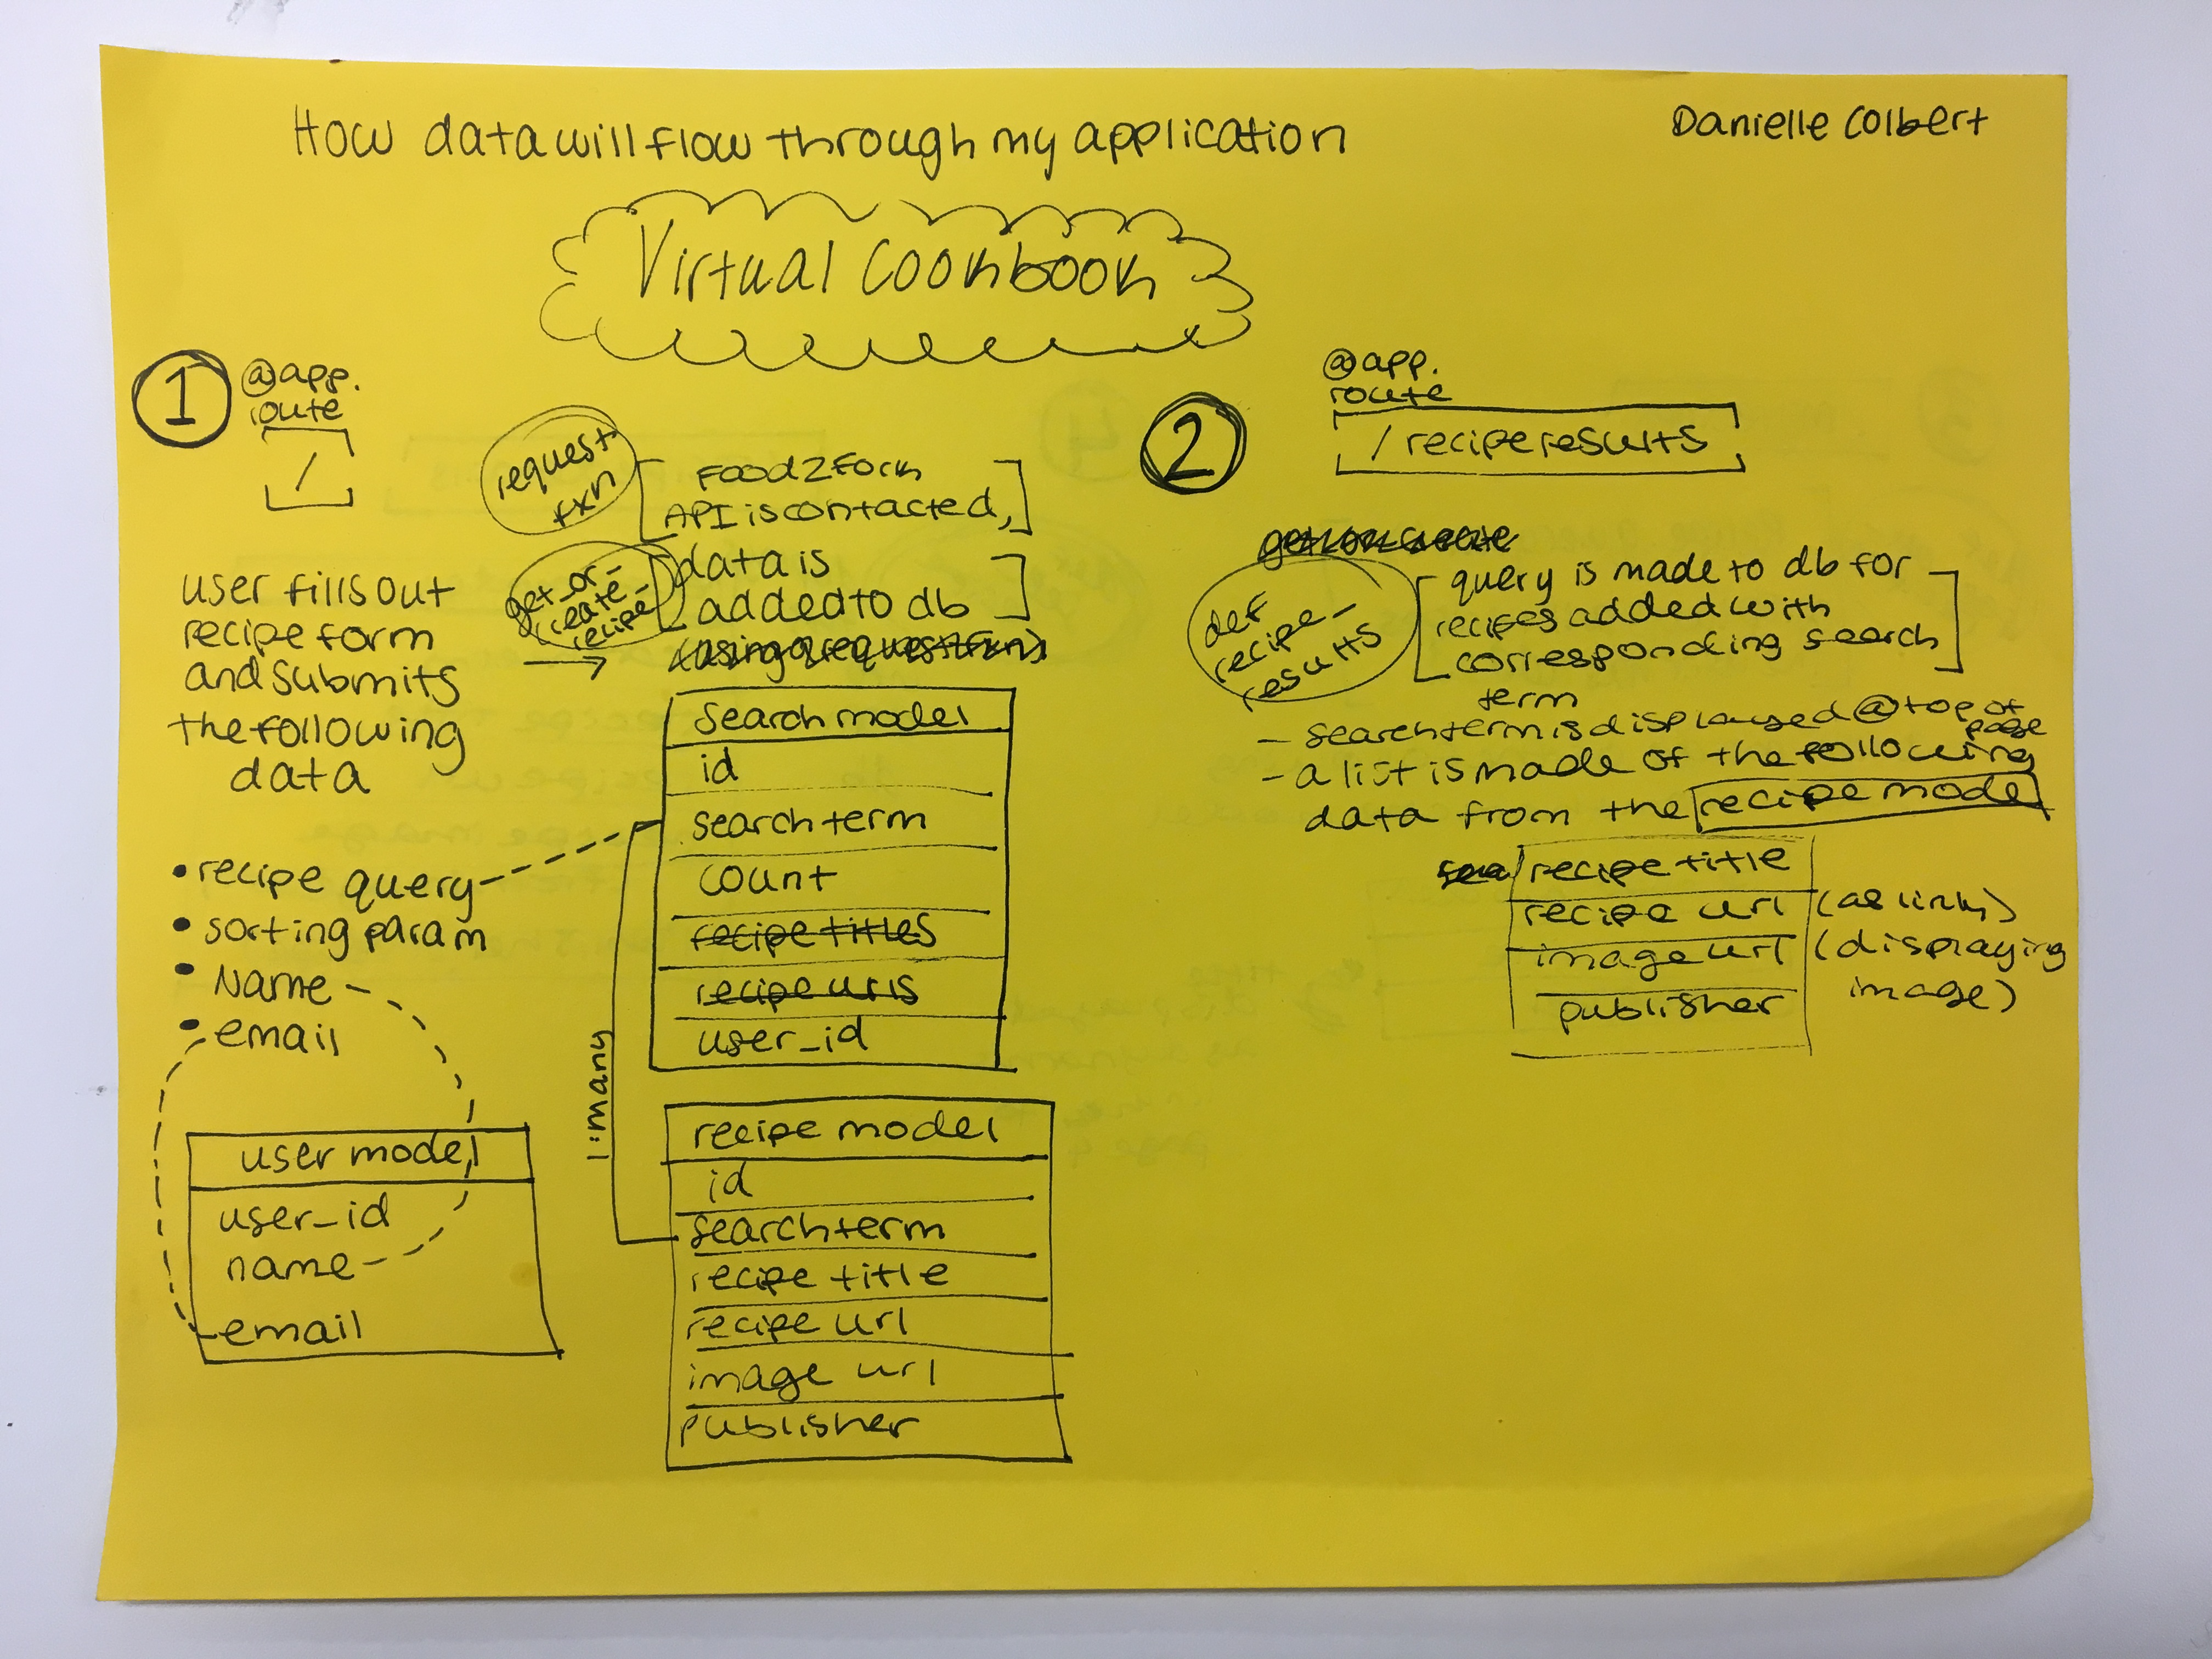 How data will flow through my application
Danielle Colbert
Virtual Cookbook
1
@app.
route
/
user fills out
recipe form
and submits
the following
data
• recipe query
• sorting param
• Name
• email
user model
user_id
name
email
request
txn
Food2Fork
API is contacted,
get_or_
create_
recipe
data is
added to db
search model
id
search term
count
recipe titles
recipe urls
user_id
1:many
recipe model
id
search term
recipe title
recipe url
image url
publisher
2
@app.
route
/recipe results
def
recipe_
results
query is made to db for
recipes added with
corresponding search
term
- search term is displayed @ top of
page
- a list is made of the following
data from the recipe model
recipe title
recipe url (as link)
image url (displaying
image)
publisher